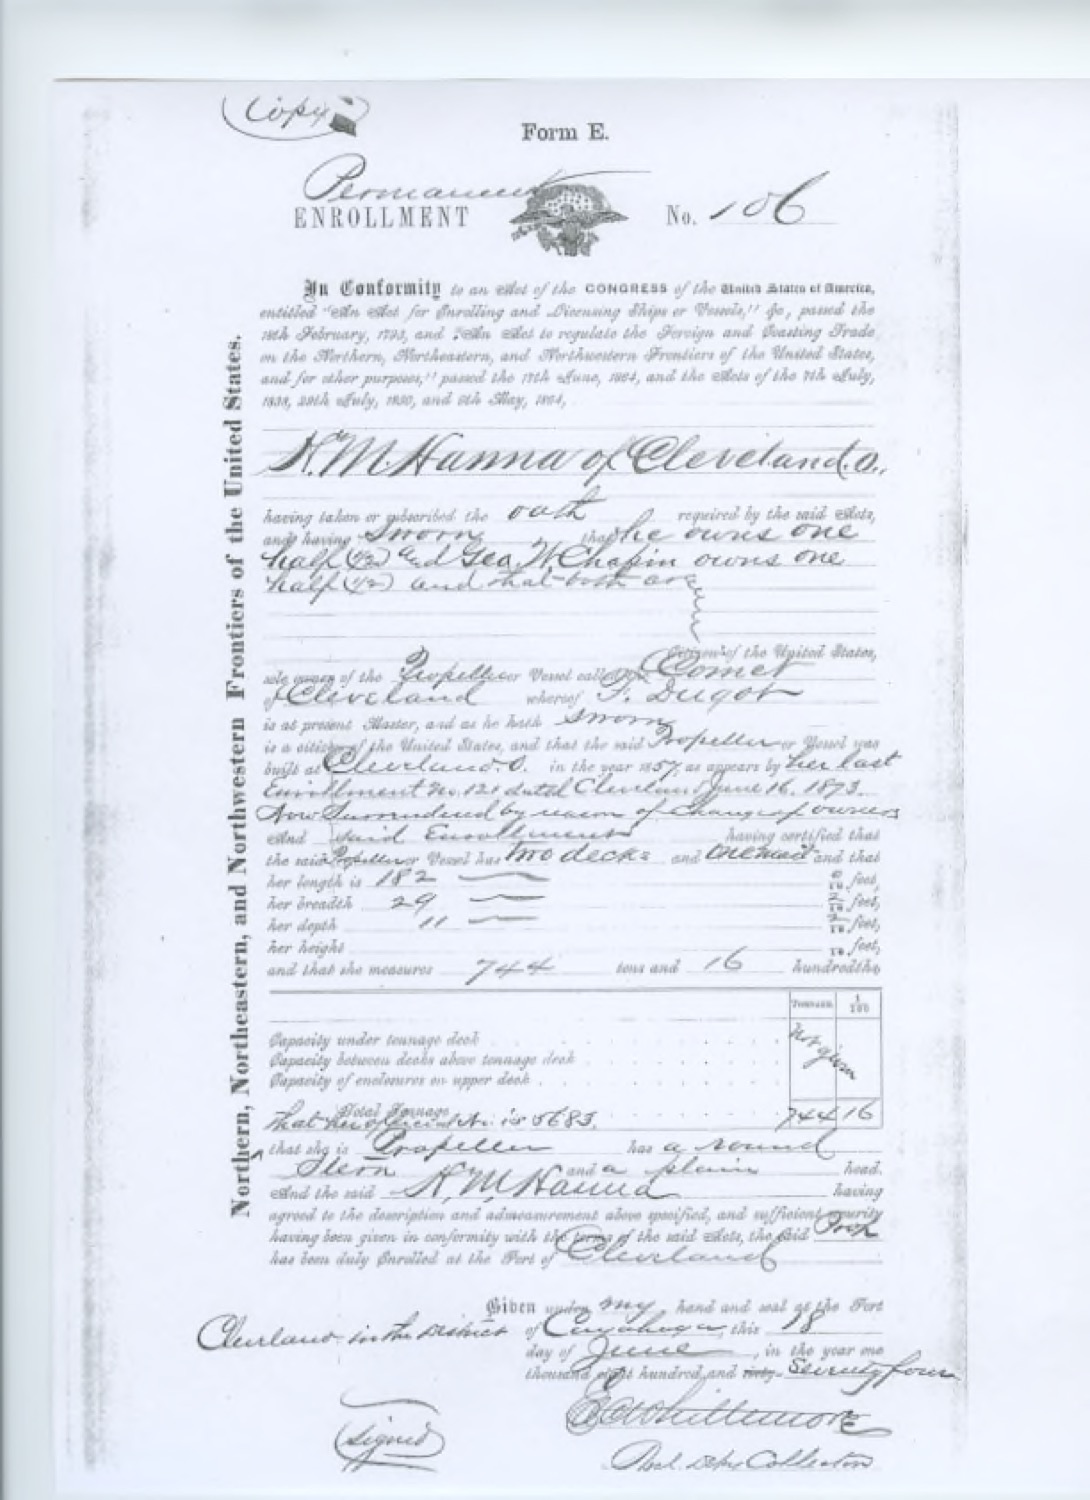 Copy
Form E.
Permanent
ENROLLMENT No. 106
In Conformity to an Act of the CONGRESS of the United States of America,
entitled "An Act for Enrolling and Licensing Ships or Vessels," &c, passed the
18th February, 1793, and "An Act to regulate the Foreign and Coasting Trade
on the Northern, Northeastern, and Northwestern Frontiers of the United States,
and for other purposes," passed the 17th June, 1864, and the Acts of the 7th July,
1838, 29th July, 1850, and 5th May, 1864,
H. M. Hanna of Cleveland. O.,
having taken or subscribed the oath required by the said Acts,
and having Sworn that he owns one
half (1/2) and Geo. W. Chapin owns one
half (1/2) and that both are
citizens of the United States,
sole owners of the Propeller or Vessel called the Comet
of Cleveland whereof F. Dugot
is at present Master, and as he hath Sworn
is a citizen of the United States, and that the said Propeller or Vessel was
built at Cleveland. O. in the year 1857, as appears by her last
Enrollment No. 121 dated Cleveland June 16, 1873.
Now Surrendered by reason of Change of owners
And said Enrollment having certified that
the said Propeller or Vessel has two decks and one mast and that
her length is 182 0/10 feet,
her breadth 29 2/10 feet,
her depth 11 2/10 feet,
her height 10 feet,
and that she measures 744 tons and 16 hundredths
TONNAGE. 1/100
Capacity under tonnage deck
Capacity between decks above tonnage deck
Capacity of enclosures on upper deck
not given
Total Tonnage 744 16
That her official No. is 5683.
that she is Propeller has a round
Stern and a plain head.
And the said H. M. Hanna having
agreed to the description and admeasurement above specified, and sufficient security
having been given in conformity with the terms of the said Acts, the said Prop
has been duly Enrolled at the Port of Cleveland
Given under my hand and seal at the Port
Cleveland in the District of Cuyahoga, this 18
day of June, in the year one
thousand eight hundred and sixty- Seventy four
(Signed)
Collector
Northern, Northeastern, and Northwestern Frontiers of the United States.